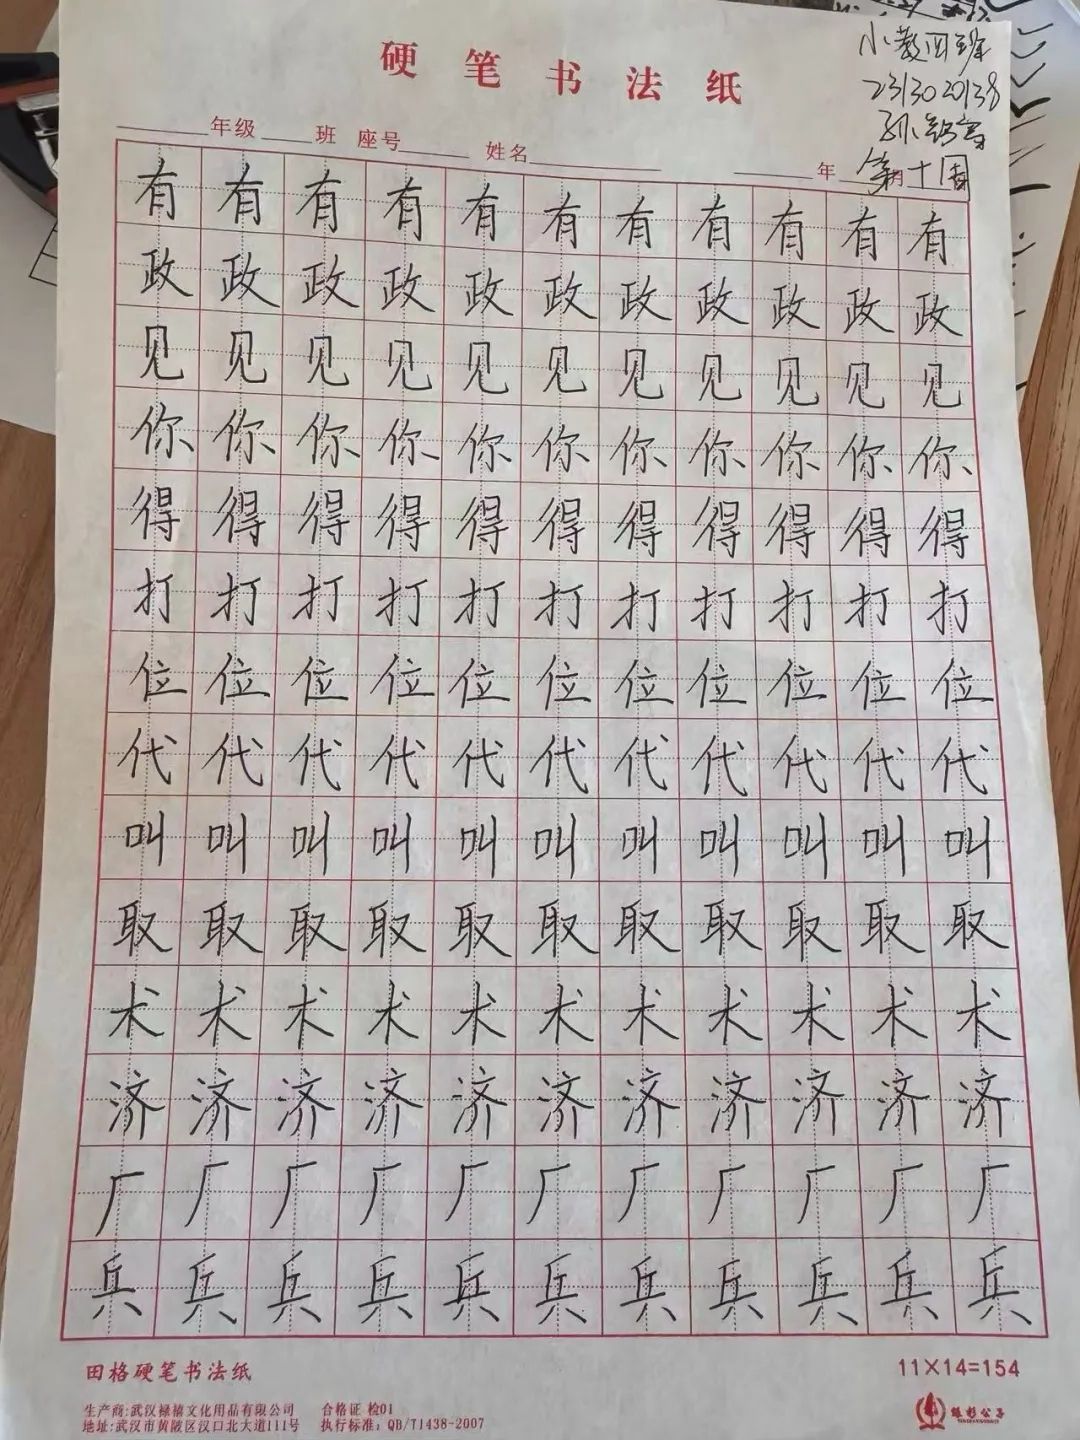 小教四班
2313020138
孙
第十周
硬笔书法纸
年级 班 座号 姓名 年 月
有有有有有有有有有有有
政政政政政政政政政政政
见见见见见见见见见见见
你你你你你你你你你你你
得得得得得得得得得得得
打打打打打打打打打打打
位位位位位位位位位位位
代代代代代代代代代代代
叫叫叫叫叫叫叫叫叫叫叫
取取取取取取取取取取取
术术术术术术术术术术术
济济济济济济济济济济济
厂厂厂厂厂厂厂厂厂厂厂
兵兵兵兵兵兵兵兵兵兵兵
田格硬笔书法纸 11×14=154
生产商:武汉禄禧文化用品有限公司 合格证 检01
地址:武汉市黄陂区汉口北大道111号 执行标准: QB/T1438-2007